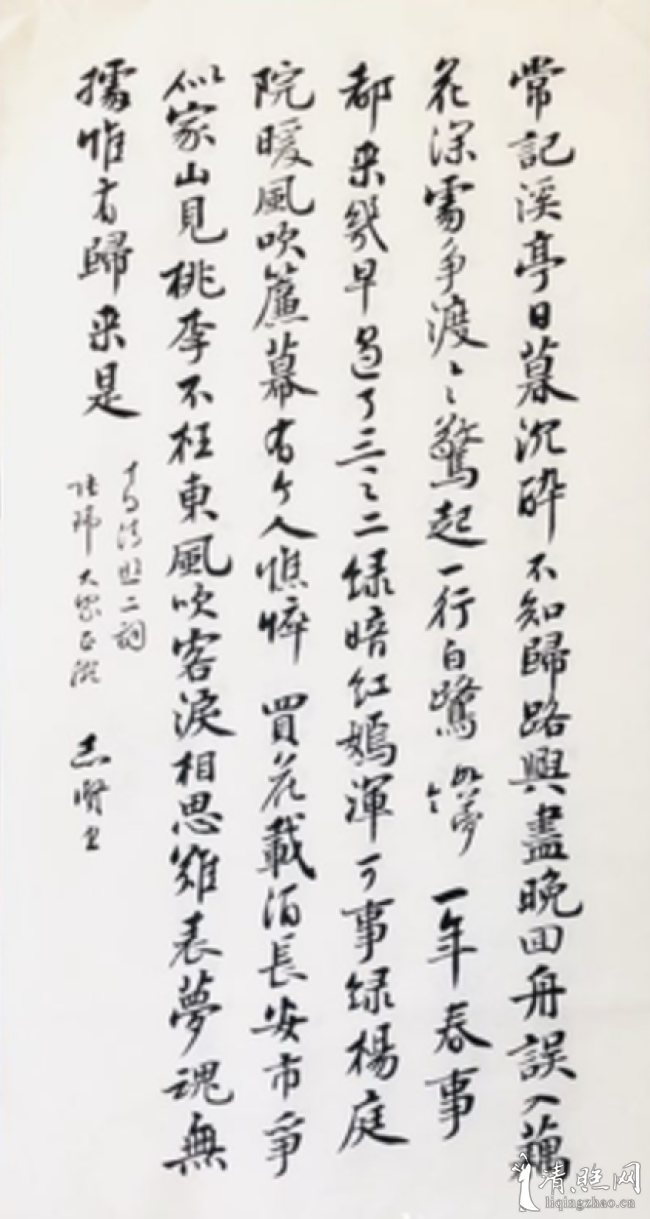 常記溪亭日暮沉醉不知歸路興盡晚回舟誤入藕
花深處爭渡〻驚起一行白鷺 一年春事
都來幾早過了三之二綠暗紅嫣渾可事綠楊庭
院暖風吹簾幕有个人憔悴 買花載酒長安市爭
似家山見桃李不枉東風吹客淚相思難表夢魂無
據惟有歸來是
李清照二詞
大家正
志賢書
青旺网
liqingzhao.cn